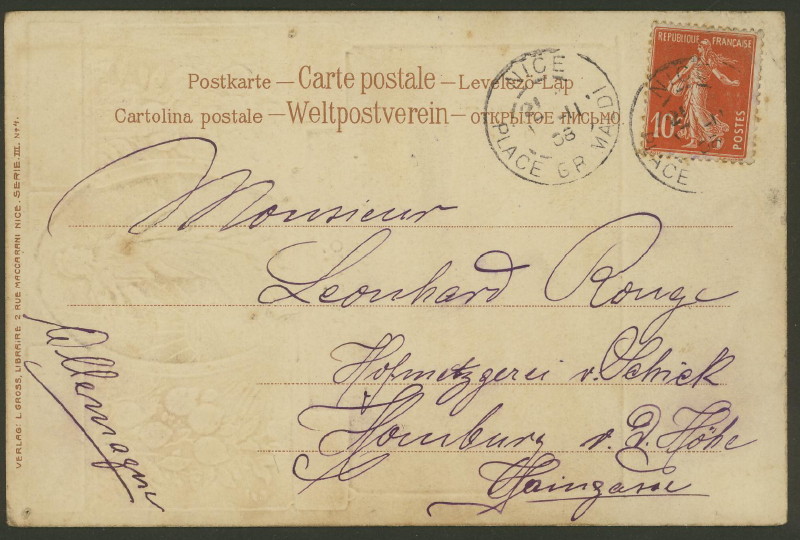 Postkarte — Carte postale — Levelezö-Lap
Cartolina postale — Weltpostverein — ОТКРЫТОЕ ПИСЬМО.
NICE
11
08
PLACE GRIMALDI
REPUBLIQUE FRANÇAISE
10
POSTES
NICE
PLACE
Monsieur
Leonhard Rouge
Hofmetzgerei v. Schick
Homburg v. d. Höhe
Haingasse
Allemagne
VERLAG: L. GROSS, LIBRAIRE 2 RUE MACCARANI NICE. SERIE III. No 4.